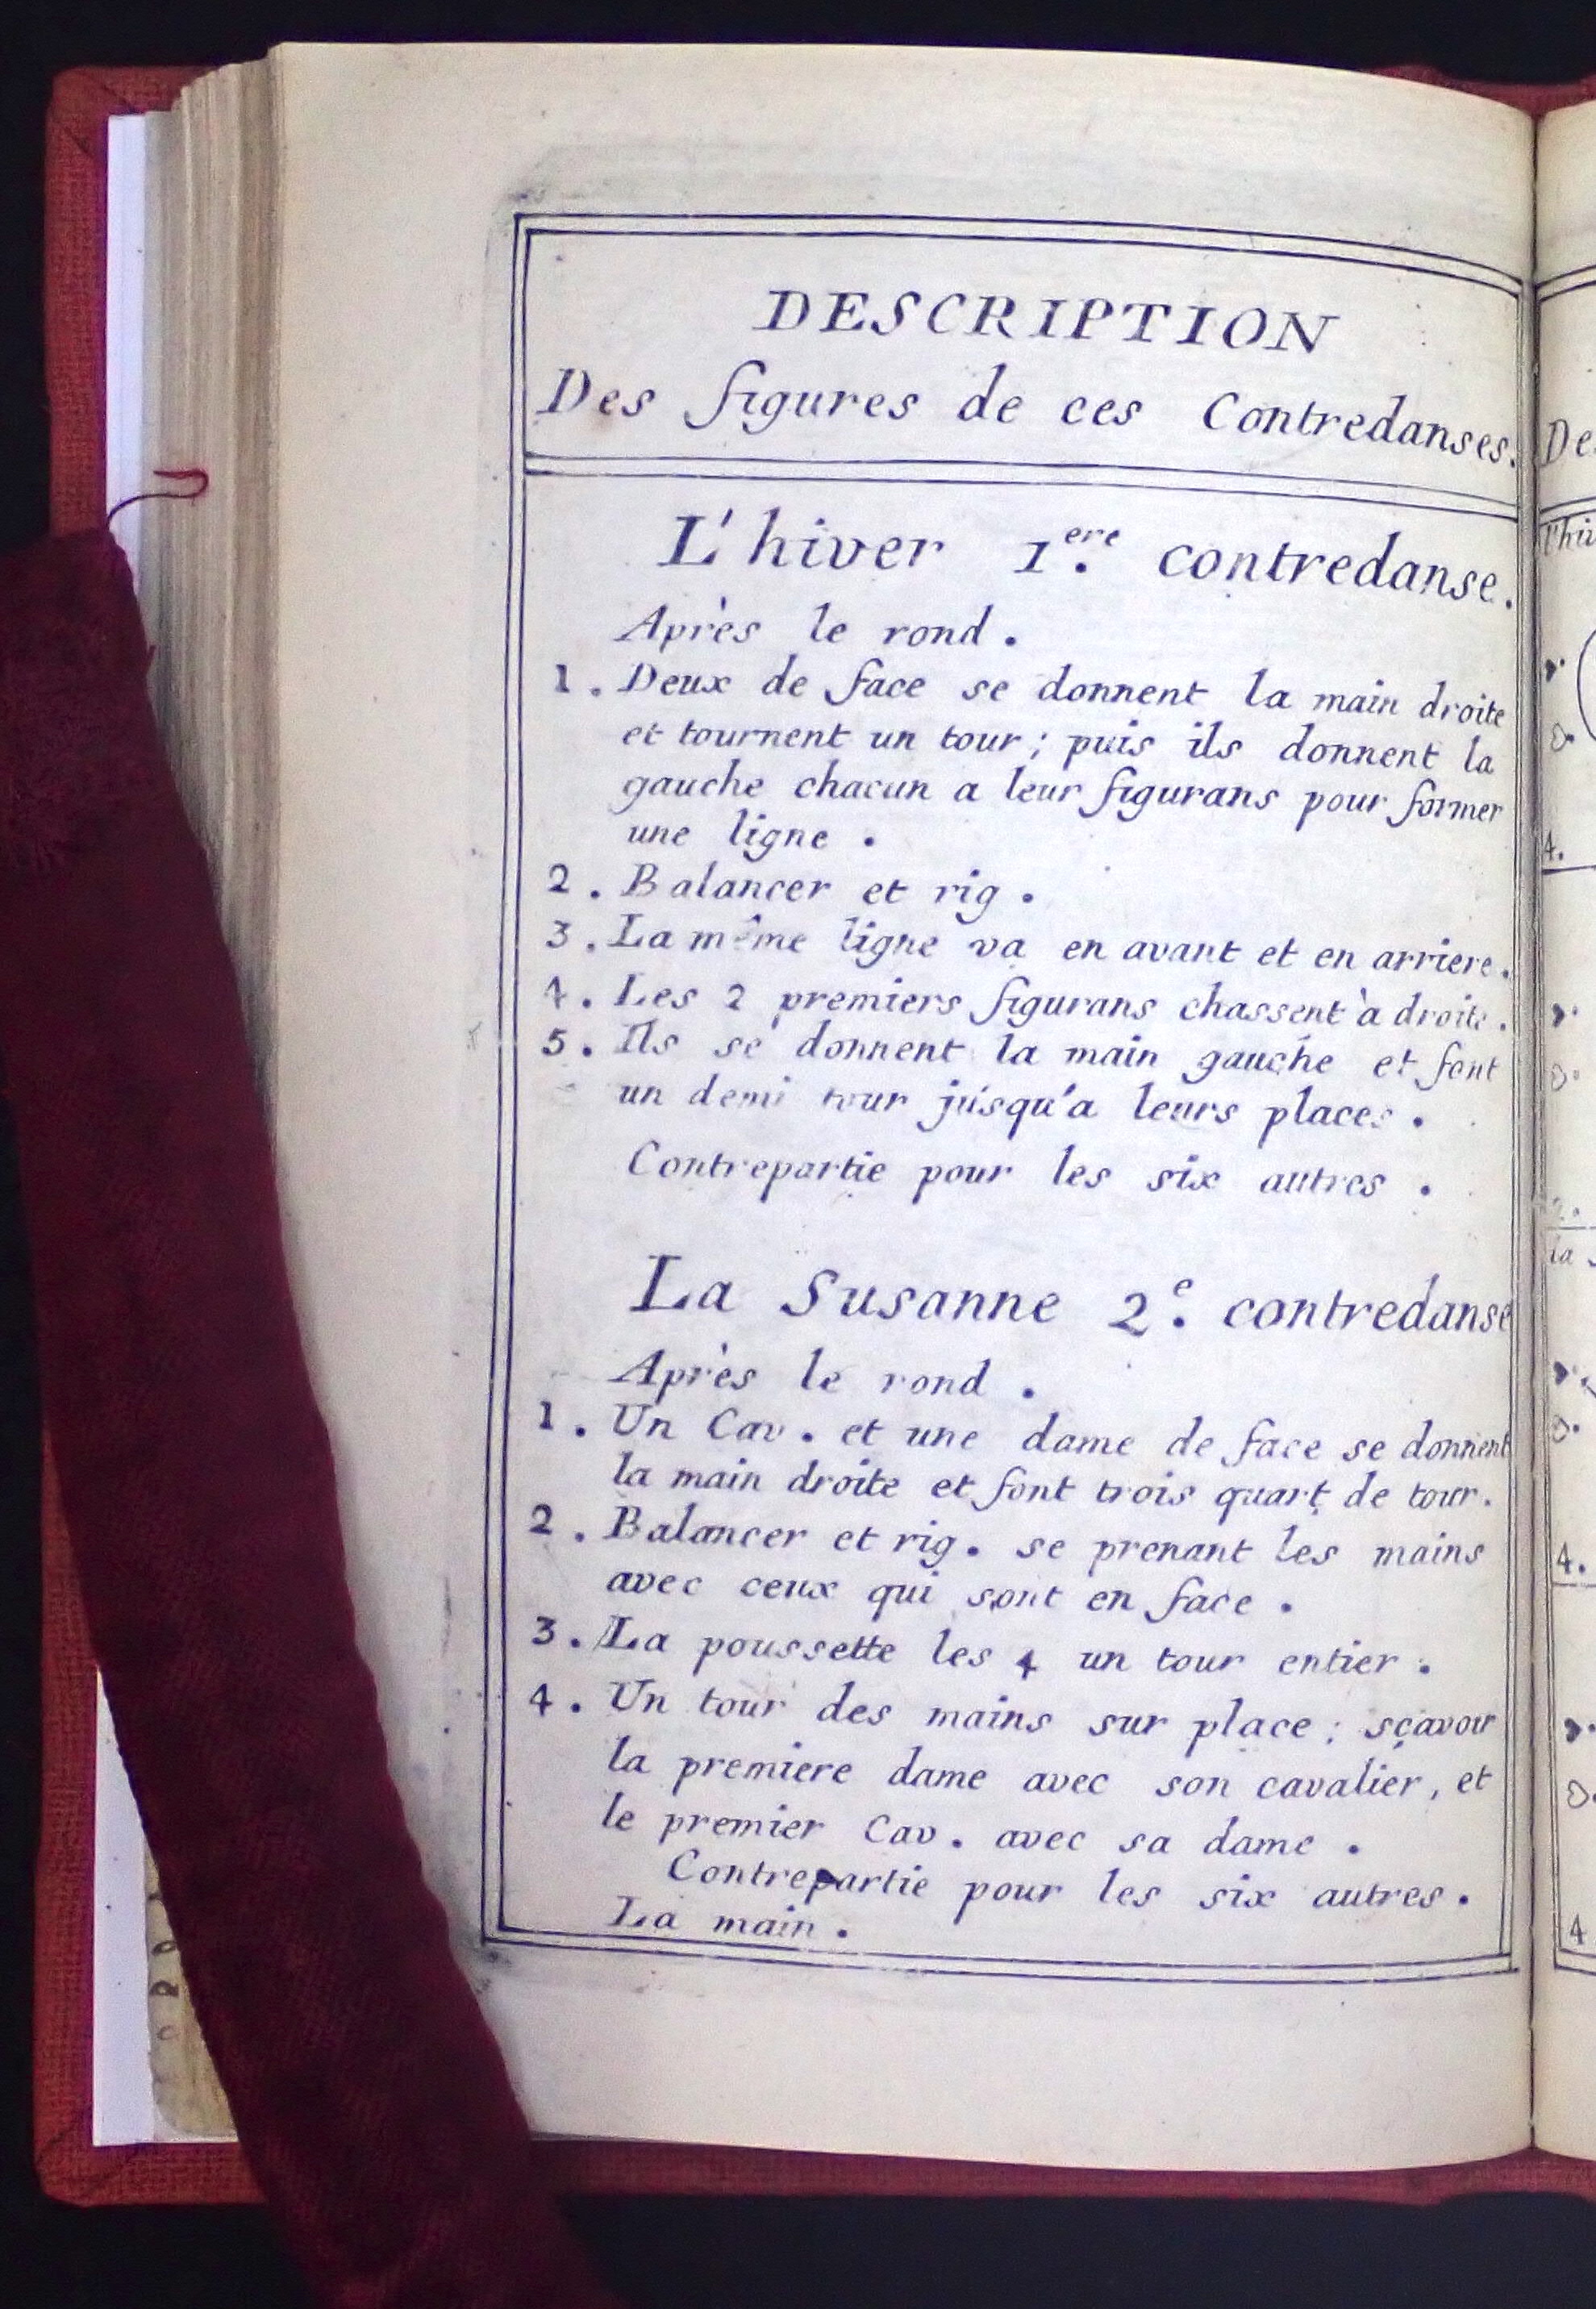 DESCRIPTION
Des figures de ces Contredanses.
L'hiver 1.ere contredanse.
Après le rond.
1. Deux de face se donnent la main droite
et tournent un tour; puis ils donnent la
gauche chacun a leur figurans pour former
une ligne.
2. Balancer et rig.
3. La même ligne va en avant et en arriere.
4. Les 2 premiers figurans chassent à droite.
5. Ils se donnent la main gauche et font
un demi tour jusqu'a leurs places.
Contrepartie pour les six autres.
La Susanne 2.e contredanse
Après le rond.
1. Un Cav. et une dame de face se donnent
la main droite et font trois quart de tour.
2. Balancer et rig. se prenant les mains
avec ceux qui sont en face.
3. La poussette les 4 un tour entier.
4. Un tour des mains sur place; sçavoir
la premiere dame avec son cavalier, et
le premier Cav. avec sa dame.
Contrepartie pour les six autres.
La main.
De
l'hi
4.
2.
la
4.
4